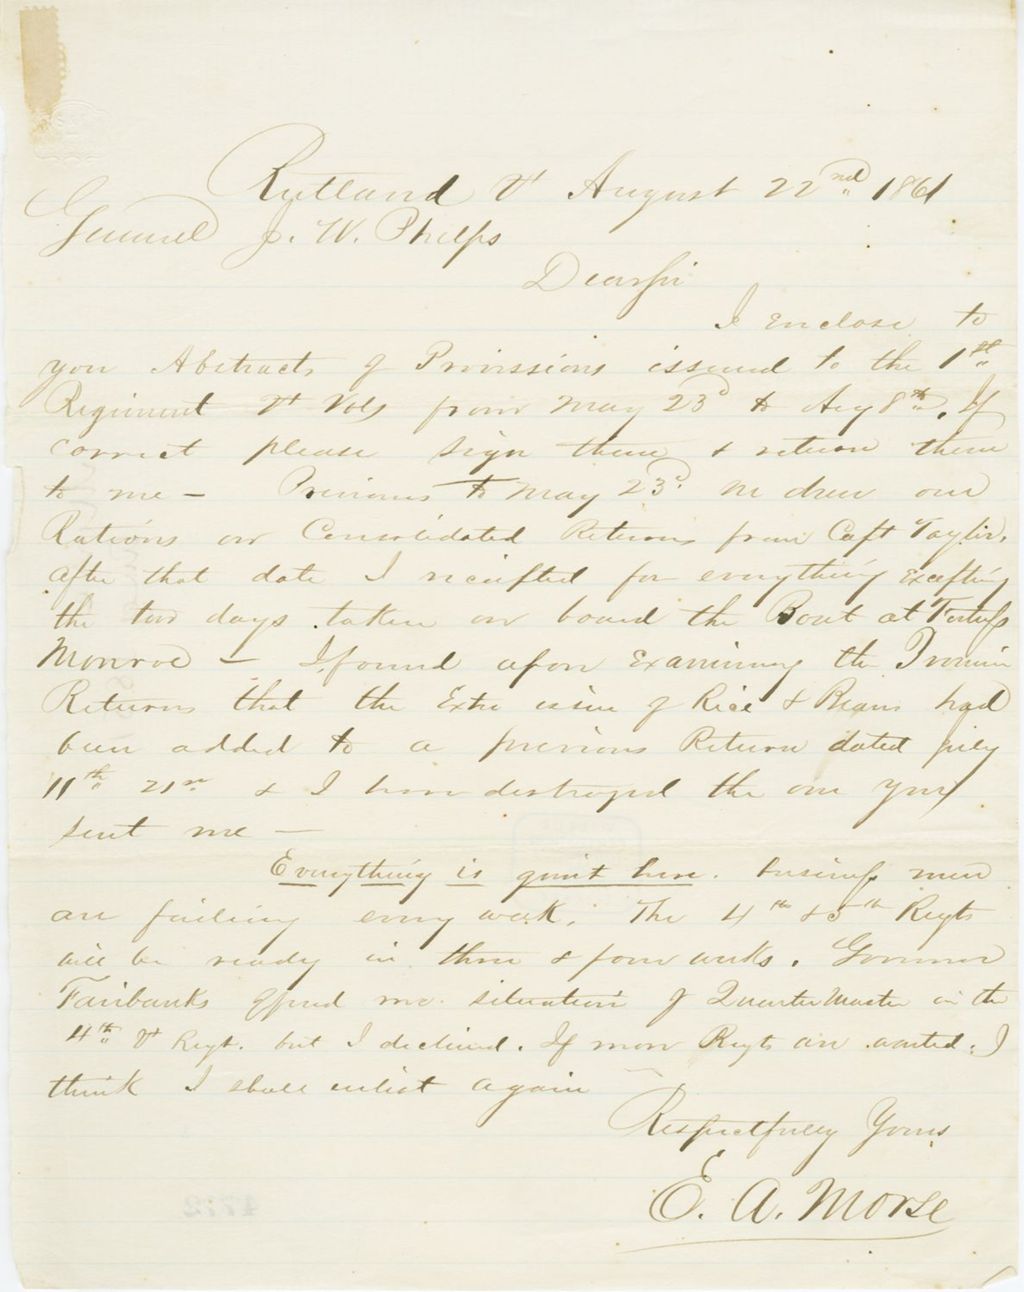 Rutland Vt August 22nd 1861
General J. W. Phelps
Dear Sir
I enclose to
you Abstracts of Provissions issued to the 1st
Regiment Vt Vols from May 23d to Aug 8th. If
correct please sign them & return them
to me — Previous to May 23d. We drew our
Rations on Consolidated Returns from Capt Taylor.
After that date I receipted for everything excepting
the two days taken on board the Boat at Fortress
Monroe — I found upon examining the Provision
Returns that the Extra issue of Rice & Beans had
been added to a previous Return dated July
11th 21st & I have destroyed the one you
sent me —
Everything is quiet here. business men
are failing every week. The 4th & 5th Regts
will be ready in three & four weeks. Governor
Fairbanks offered me situation of Quarter Master in the
4th Vt Regt. but I declined. If more Regts are wanted. I
think I shall enlist again
Respectfully Yours
E. A. Morse
4772